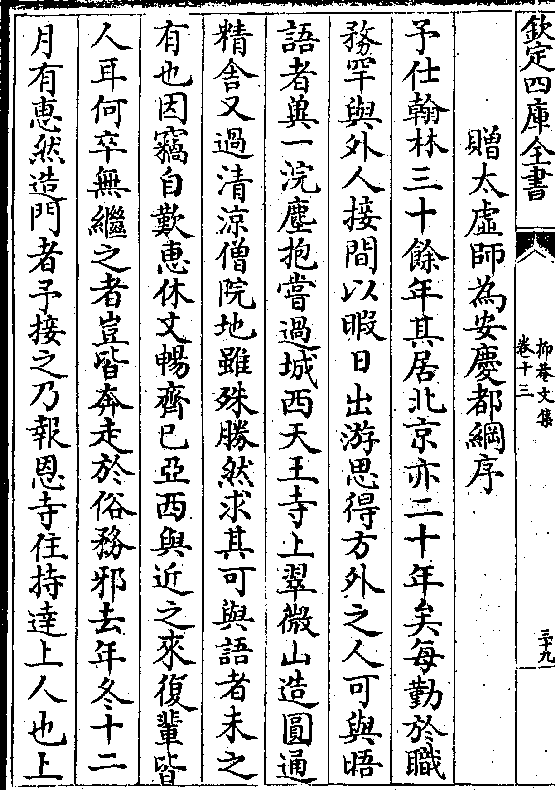 欽定四庫全書
抑菴文集
卷十三
三十九
贈太虛師為安慶都綱序
予仕翰林三十餘年其居北京亦二十年矣每勤於職
務罕與外人接間以暇日出游思得方外之人可與晤
語者兾一浣塵抱嘗過城西天王寺上翠微山造圓通
精舍又過清涼僧院地雖殊勝然求其可與語者未之
有也因竊自歎惠休文暢齊已亞西與近之來復輩皆
人耳何卒無繼之者豈皆奔走於俗務邪去年冬十二
月有惠然造門者予接之乃報恩寺住持達上人也上